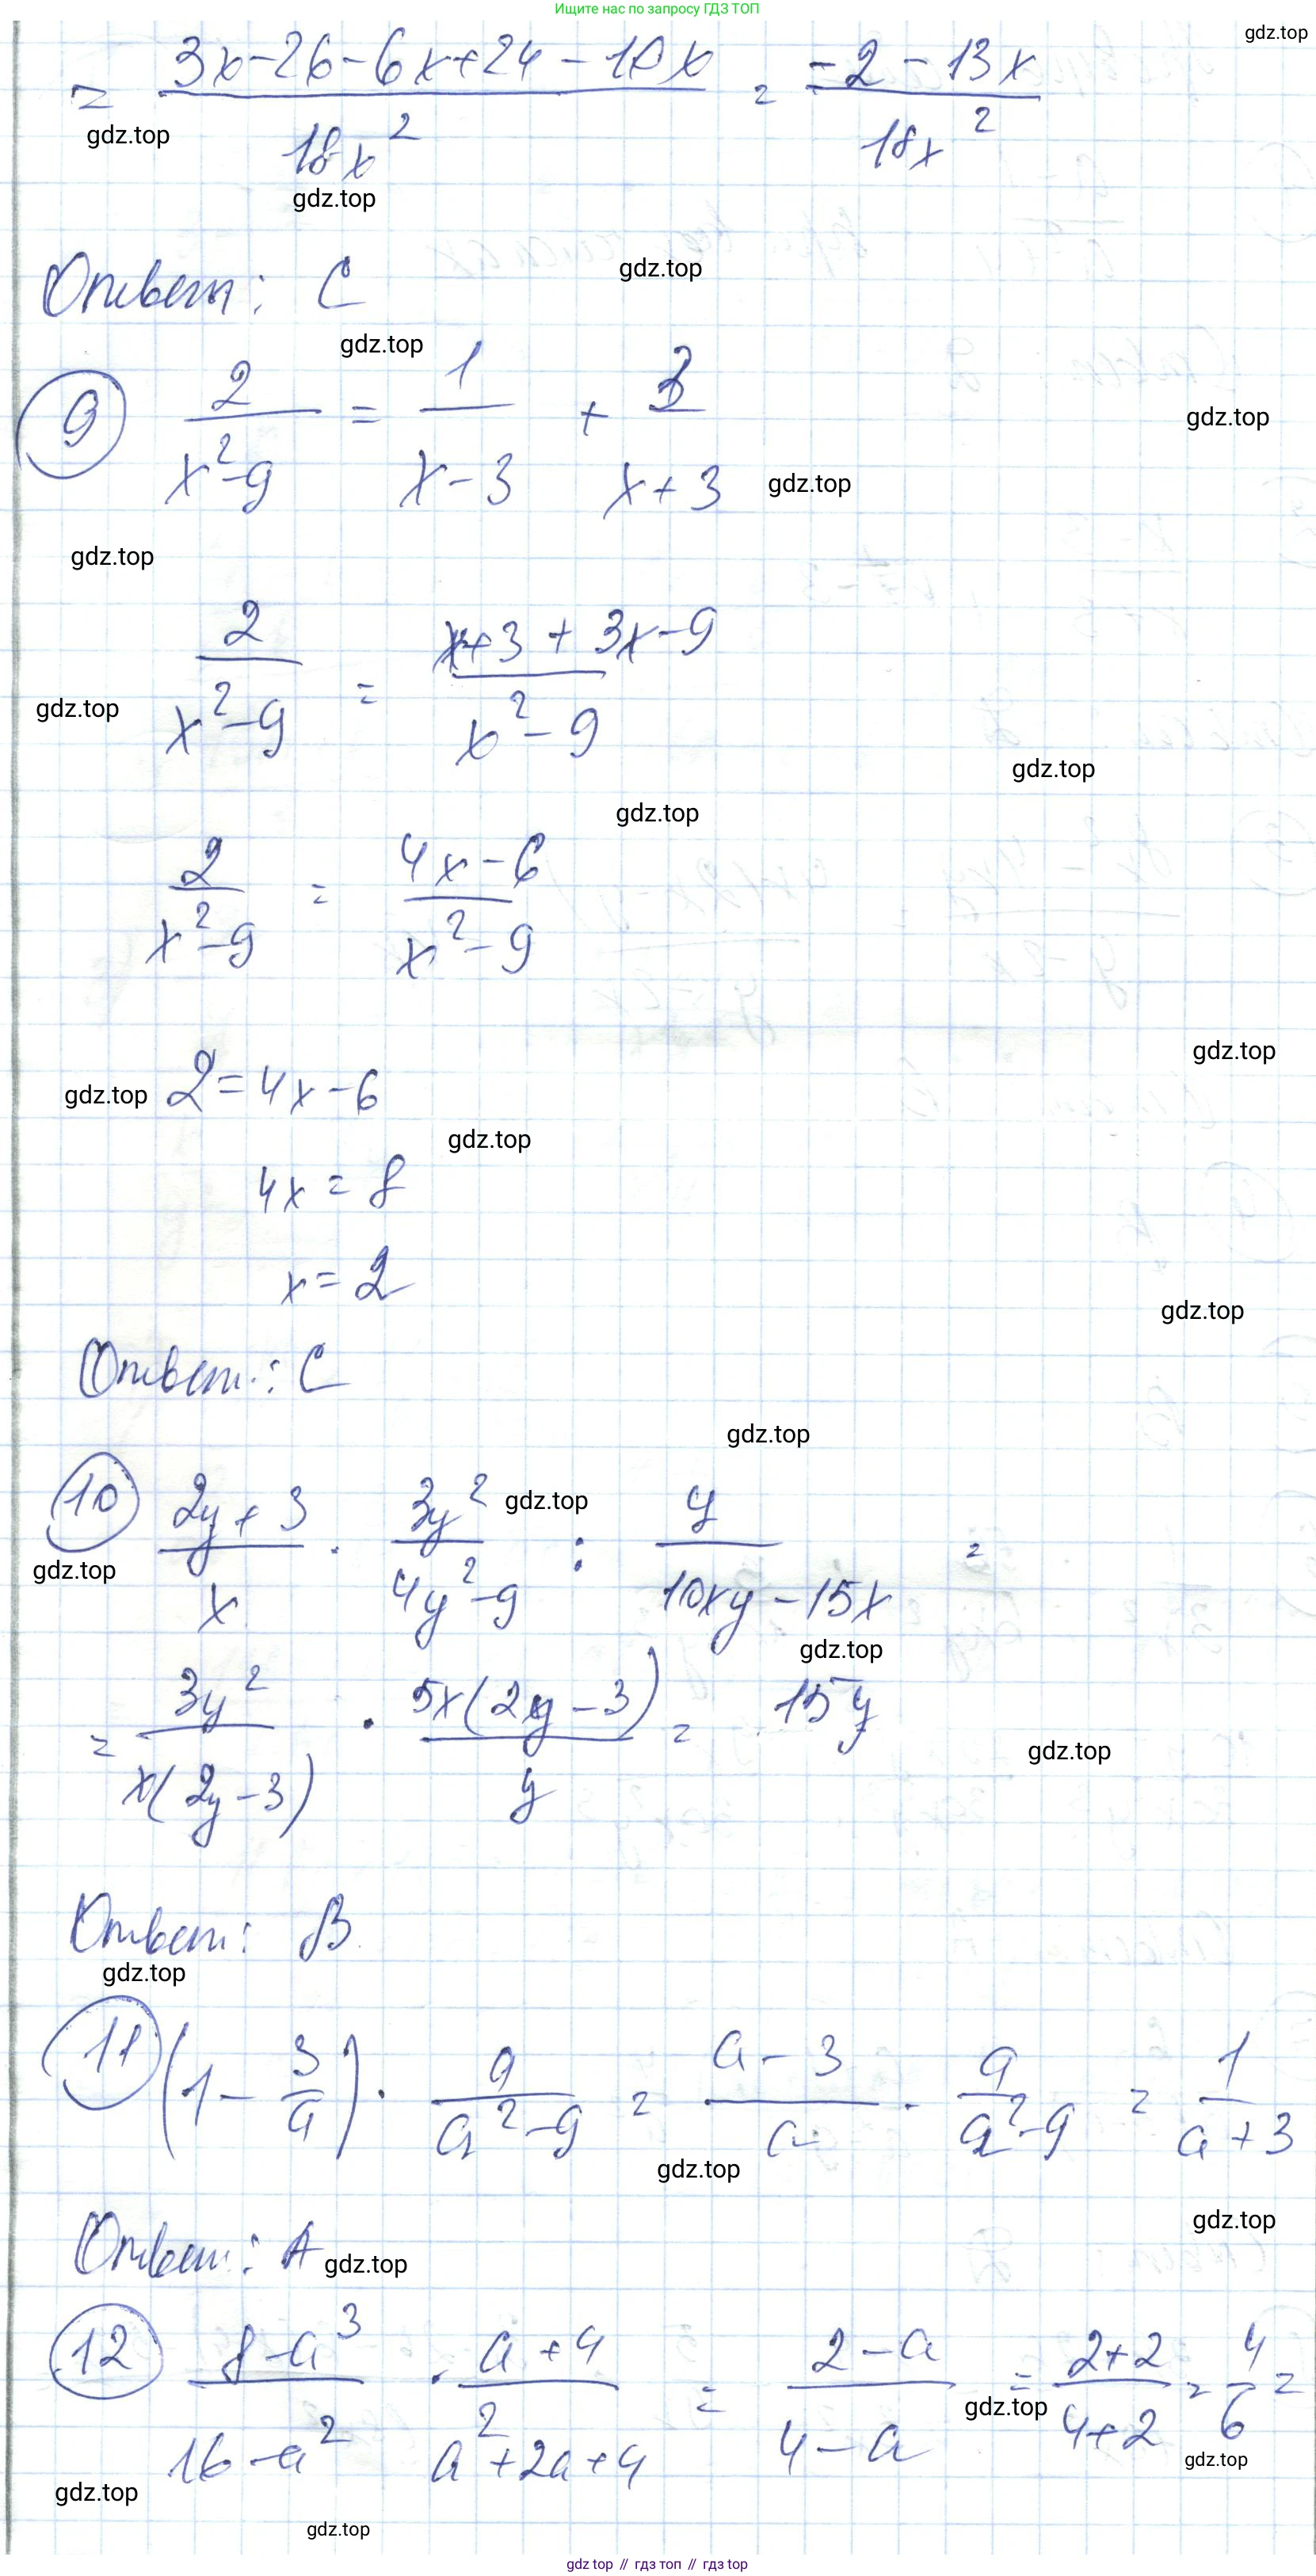 Ищите нас по запросу ГДЗ ТОП
gdz.top
= (3x-26-6x+24-10x)/(18x²) = (-2-13x)/(18x²)
gdz.top
gdz.top
Ответ: C
gdz.top
gdz.top
9 2/(x²-9) = 1/(x-3) + 3/(x+3)
gdz.top
gdz.top
gdz.top
2/(x²-9) = (x+3+3x-9)/(x²-9)
gdz.top
gdz.top
gdz.top
2/(x²-9) = (4x-6)/(x²-9)
gdz.top
gdz.top 2=4x-6
gdz.top
4x=8
x=2
gdz.top
Ответ: C
gdz.top
10 (2y+3)/x · 3y²/(4y²-9) : y/(10xy-15x) =
gdz.top
gdz.top
gdz.top
= 3y²/(x(2y-3)) · 5x(2y-3)/y = 15y
gdz.top
Ответ: B
gdz.top
11 (1-3/a) · a/(a²-9) = (a-3)/a · a/(a²-9) = 1/(a+3)
gdz.top
gdz.top
Ответ: A
gdz.top
12 (8-a³)/(16-a²) · (a+4)/(a²+2a+4) = (2-a)/(4-a) = (2+2)/(4+2) = 4/6 =
gdz.top
gdz.top
gdz.top
gdz.top
gdz top // гдз топ // gdz top